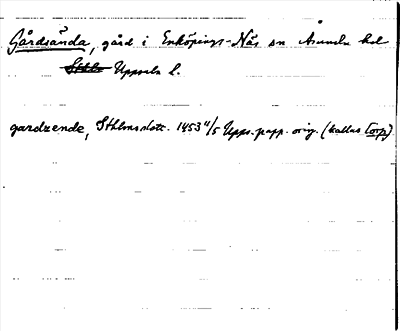 Gårdsända, gård i Enköpings-Näs sn Åsunda hd
Sthlm Uppsala l.
gardzende, Sthlmsdotr. 1453 4/5 Upps. papp. orig. (kallas Torp)